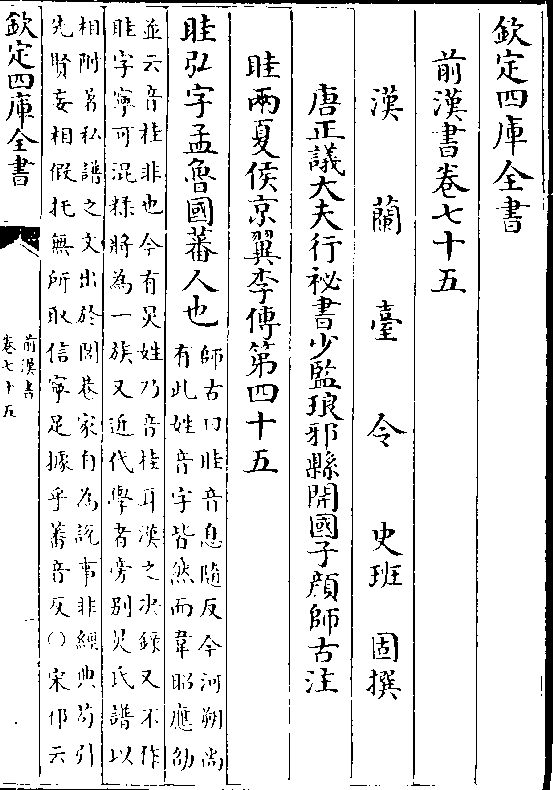 欽定四庫全書
前漢書卷七十五
漢蘭臺令史班固撰
唐正議大夫行祕書少監琅邪縣開國子顔師古注
眭兩夏侯京翼李傳第四十五
眭弘字孟魯國蕃人也
師古曰眭音息隨反今河朔尚
有此姓音字皆然而韋昭應劭
並云音桂非也今有炅姓乃音桂耳漢之決録又不作
眭字寧可混糅將為一族又近代學者旁引炅氏譜以
相附著私譜之文出於閭巷家自為説事非經典苟引
先賢妄相假託無所取信寧足據乎蕃音反〇宋祁云
欽定四庫全書
前漢書
卷七十五